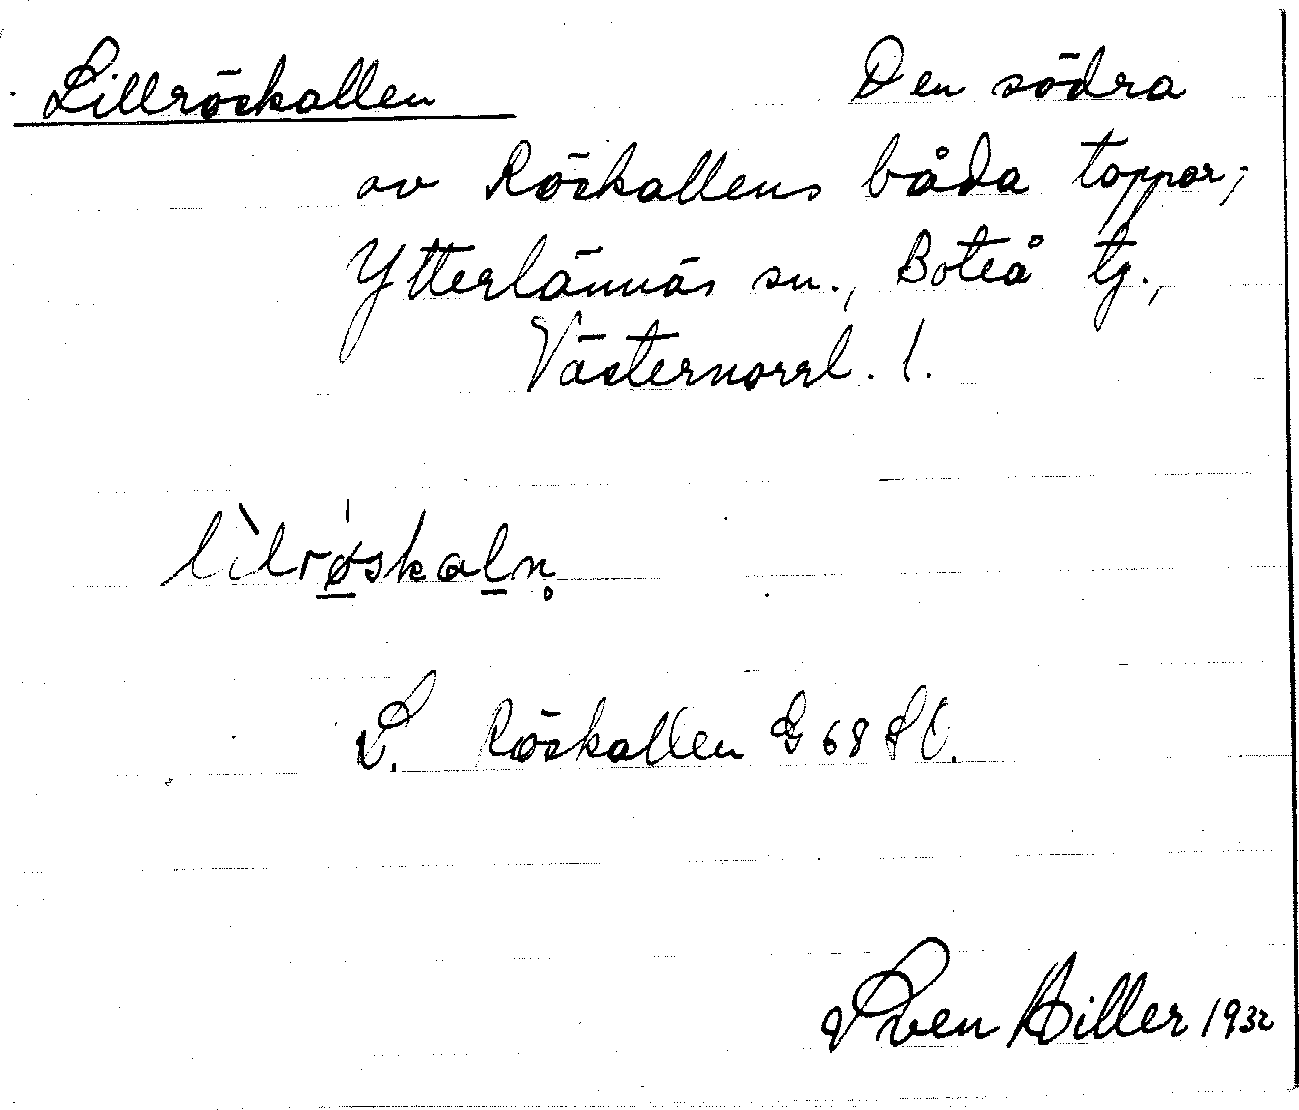 Lillröskallen Den södra
av Röskallens båda toppar;
Ytterlännäs sn., Boteå tg.,
Västernorrl. l.
lìlrø̱skaḻn̥
S. Röskallen G 68 SV.
Sven Hiller 1932